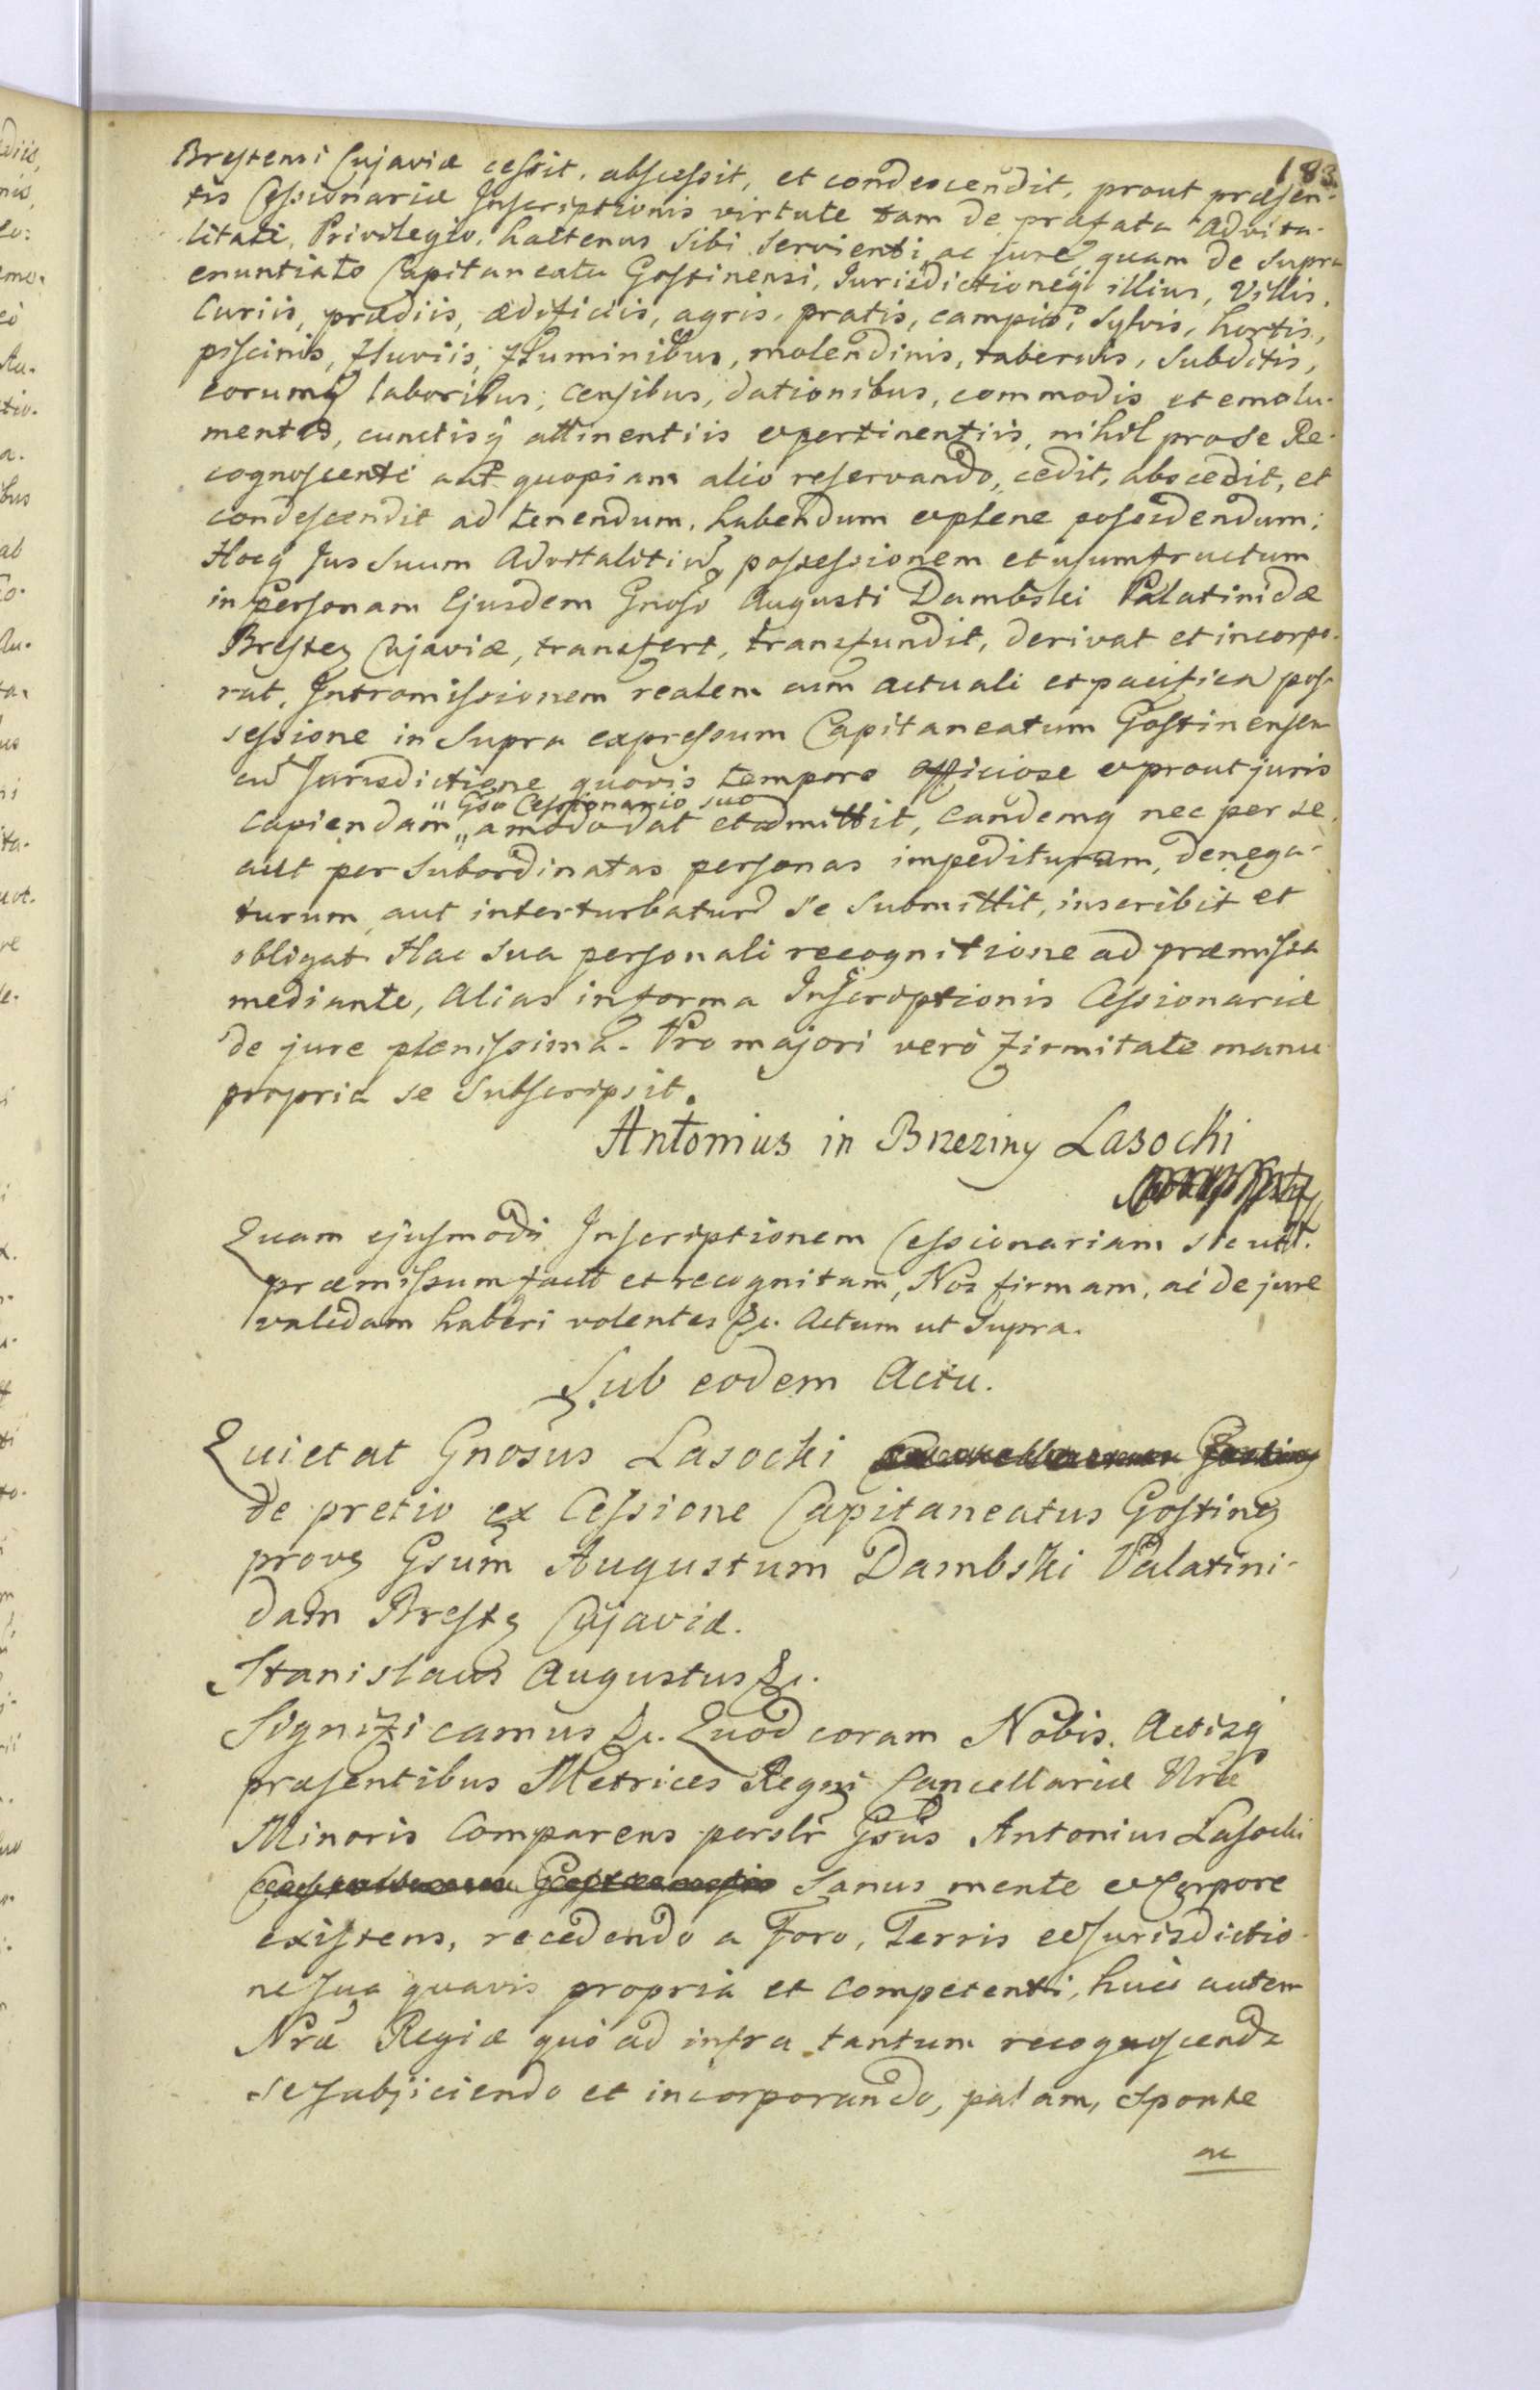 183
Brestensi Cujaviæ cessit, abscessit, et condescendit, prout præsen-
tis Cessionariæ Inscriptionis virtute tam de præfata Advita-
litate, Privilegio, hactenus sibi servienti, ac jure, quam de supra
enuntiato Capitaneatu Gostinensi, Jurisdictioneq illius, Villis,
Curiis, prædiis, ædificiis, agris, pratis, campis, sylvis, hortis,
piscinis, fluviis, fluminibus, molendinis, tabernis, subditis,
eorumq laboribus, censibus, dationibus, commodis et emolu-
mentis, cunctisq attinentiis et pertinentiis, nihil pro se Re-
cognoscenti aut quopiam alio reservando, cedit, abscedit, et
condescendit ad tenendum, habendum et plene possidendum;
Hocq Jus suum Advitalitiũ, possessionem et usumfructum
in Personam Ejusdem Gnosi Augusti Dambski Palatinidæ
Brestez Cujaviæ, transfert, transfundit, derivat et incorpo-
rat, Intromissionem realem cum actuali et pacifica pos-
sessione in supra expressum Capitaneatum Gostinensem
cũ Jurisdictione quovis tempore officiose et prout juris
Gso Cessionario suo
capiendam " amodo dat et admittit, eandemq nec per se,
aut per subordinatas personas impediturum, denega-
turum, aut interturbaturũ se submittit, inscribit et
obligat. Hac sua personali recognitione ad præmissa
mediante, alias in forma Inscriptionis Cessionariæ
de jure plenissima. Pro majori verò firmitate manu
propria se subscripsit.
Antonius in Brzeziny Lasocki
Quam ejusmodi Inscriptionem Cessionariam sicuti
præmissum factã et recognitam, Nos firmam, ac de jure
validam haberi volentes &c. Actum ut supra.
Sub eodem Actu.
Quietat Gnosus Lasocki
de pretio ex Cessione Capitaneatus Gostinez
provez Gsum Augustum Dambski Palatini-
dam Brestz Cujaviæ.
Stanislaus Augustus &c.
Significamus &c. Quod coram Nobis, Actisq
præsentibus Metrices Regni Cancellariæ Nræ
Minoris Comparens perslr Gsus Antonius Lasocki
sanus mente et Corpore
existens, recedendo a Foro, Terris et Jurisdictio-
ne sua quavis propria et competenti, huic autem
Nræ Regiæ quò ad infra tantum recognoscenda
se subjiciendo et incorporando, palam, sponte
ac